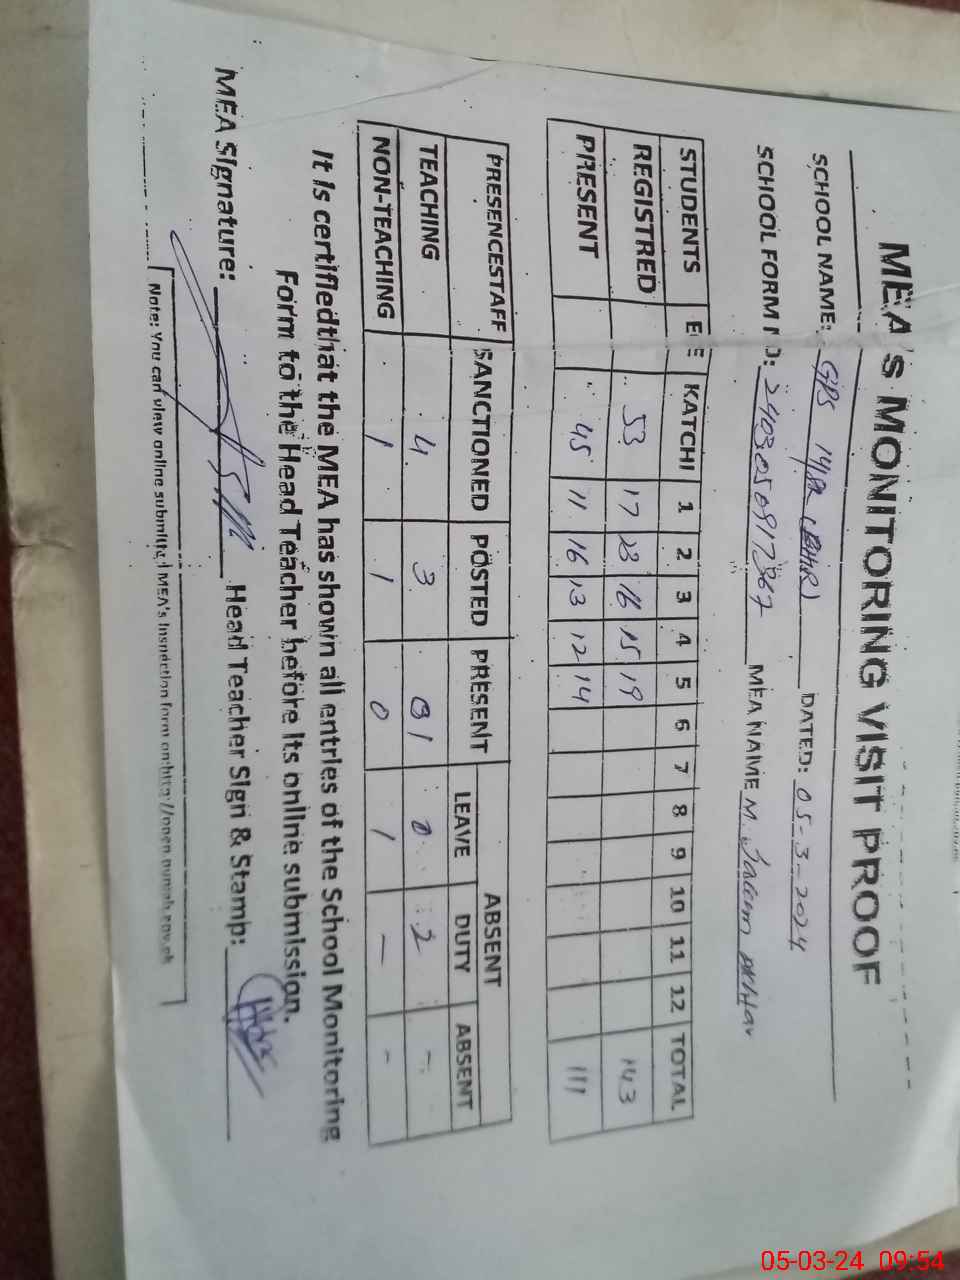 MEA's MONITORING VISIT PROOF
SCHOOL NAME: GPS 14/P DATED: 05-3-2024
SCHOOL FORM NO: 2403050917367 MEA NAME M. Saleem Akhtar
STUDENTS ECE KATCHI 1 2 3 4 5 6 7 8 9 10 11 12 TOTAL
REGISTRED 53 17 23 16 15 19 143
PRESENT 45 11 16 13 12 14 111
PRESENCESTAFF SANCTIONED POSTED PRESENT ABSENT
LEAVE DUTY ABSENT
TEACHING 4 3 1 0 2 -
NON-TEACHING 1 1 0 1 - -
It is certifiedthat the MEA has shown all entries of the School Monitoring
Form to the Head Teacher before its online submission.
MEA Signature: Head Teacher Sign & Stamp:
Note: You can view online submitted MEA's Inspection form on:http://open.punjab.gov.pk
05-03-24 09:54